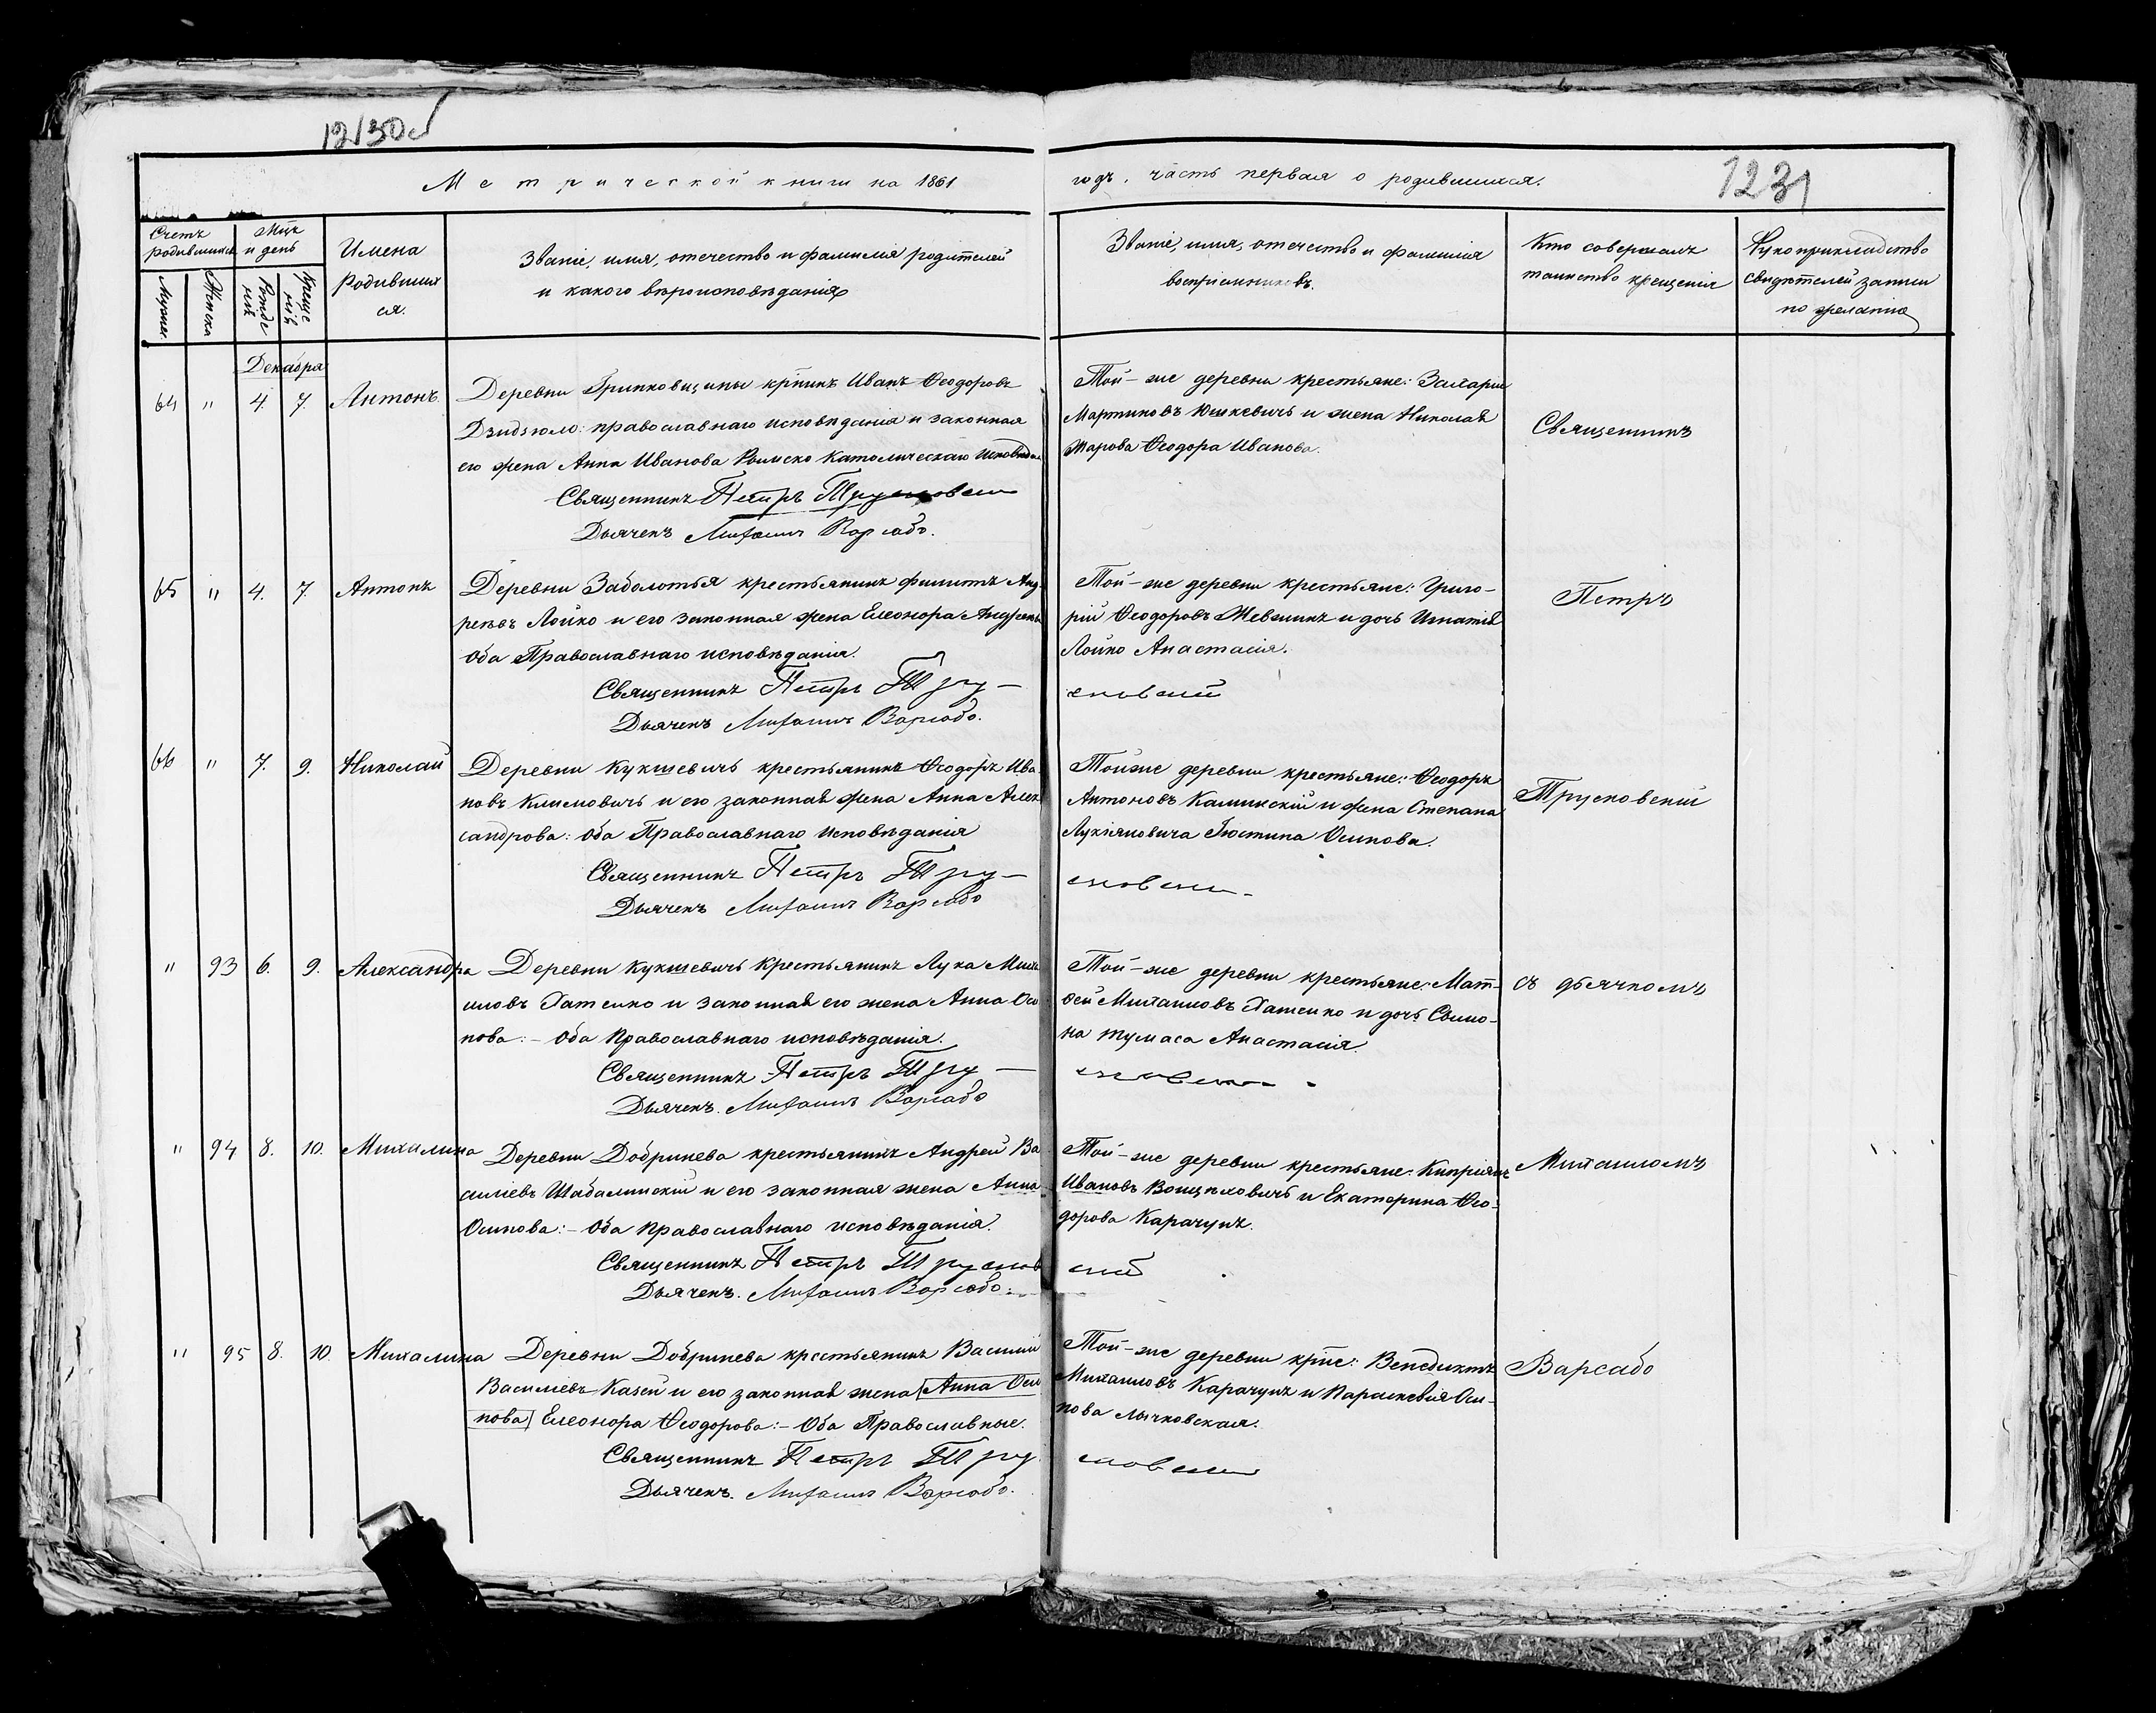 12130
Метрической книги на 1861
годъ, часть первая о родившихся.
1231
Счетъ родившихся
Мцъ и день
Имена родившихся.
Званіе, имя, отечество и фамилія родителей
и какого вѣроисповѣданія
Званіе, имя, отечество и фамилія
воспріемниковъ.
Кто совершалъ
таинство крещенія
Рукоприкладство
свидѣтелей записи
по желанію
Мужеск.
Женска
Рожденія
Крещенія
Декабря
64 " 4. 7. Антонъ
Деревни Гринковщины крнинъ Иванъ Ѳеодоровъ
Дзидзюло: православнаго исповѣданія и законная
его жена Анна Иванова Римско Католическаго
Священникъ Петръ Трусковскій
Дьячекъ Михаилъ Варсабо.
Той-же деревни крестьяне: Захарій
Мартиновъ Юшкевичъ и жена Николая
Жарова Ѳеодора Иванова.
Священникъ
65 " 4. 7. Антонъ
Деревни Заболотья крестьянинъ Филиппъ Анд-
реевъ Лойко и его законная жена Елеонора
Оба Православнаго исповѣданія.
Священникъ Петръ Тру-
сковскій
Дьячекъ Михаилъ Варсабо.
Той-же деревни крестьяне: Григо-
рій Ѳеодоровъ Жевжикъ и дочь Игнатія
Лойко Анастасія.
Петръ
66 " 7. 9. Николай
Деревни Кукшевичъ крестьянинъ Ѳеодоръ Ива-
новъ Климовичъ и его законная жена Анна Алек
сандрова: Оба Православнаго исповѣданія
Священникъ Петръ Тру-
сковскій
Дьячекъ Михаилъ Варсабо
Тойже деревни крестьяне: Ѳеодоръ
Антоновъ Калинскій и жена Степана
Лукіяновича Іюстина Осипова.
Трусковскій
" 93 6. 9. Александра
Деревни Кукшевичъ Крестьянинъ Лука Миха
иловъ Гатеlко и законная его жена Анна Оси
пова:- Оба Православнаго исповѣданія.
Священникъ Петръ Тру-
сковскій
Дьячекъ. Михаилъ Варсабо
Той-же деревни крестьяне: Мат-
ѳей Михаиловъ и дочь Симо-
на Тумаса Анастасія.
съ дьячкомъ
" 94 8. 10. Михалина
Деревни Добринева крестьянинъ Андрей Ва
силіевъ Шабалинскій и его законная жена Анна
Осипова:- Оба Православнаго исповѣданія.
Священникъ Петръ Трусков
скій
Дьячекъ. Михаилъ Варсабо.
Той-же деревни крестьяне: Кипріянъ
Ивановъ Войцеховичъ и Екатерина Ѳео-
дорова Карачунъ.
Михаиломъ
" 95 8. 10. Михалина
Деревни Добринева крестьянинъ Василій
Василіевъ Казей и его законная жена Анна Оси
пова Елеонора Ѳеодорова:- Оба Православные.
Священникъ Петръ Тру
сковскій
Дьячекъ. Михаилъ Варсабо.
Той-же деревни крне: Венедиктъ
Михаиловъ Карачунъ и Параскевія Оси-
пова Лычковская.
Варсабо